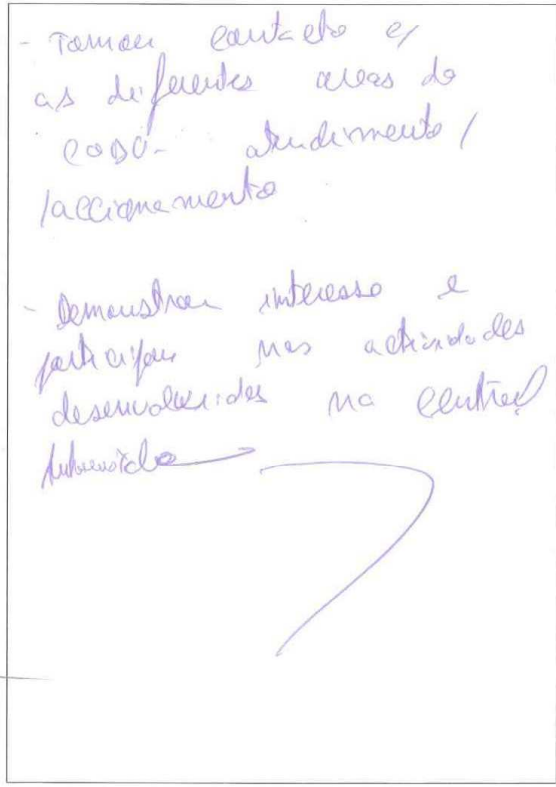 - Tomou contacto c/
as diferentes areas do
CODU- atendimento /
/accionamento
- Demonstrou interesse e
participou nas actividades
desenvolvidas na central